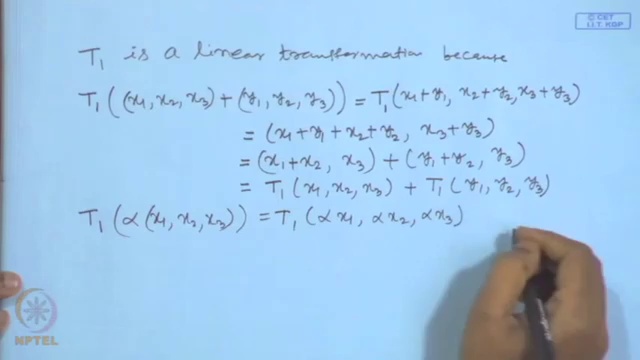 © CET
I.I.T. KGP
T₁ is a linear transformation because
T₁((x₁, x₂, x₃) + (y₁, y₂, y₃)) = T₁(x₁+y₁, x₂+y₂, x₃+y₃)
= (x₁+y₁+x₂+y₂, x₃+y₃)
= (x₁+x₂, x₃) + (y₁+y₂, y₃)
= T₁(x₁, x₂, x₃) + T₁(y₁, y₂, y₃)
T₁(α(x₁, x₂, x₃)) = T₁(αx₁, αx₂, αx₃)
NPTEL